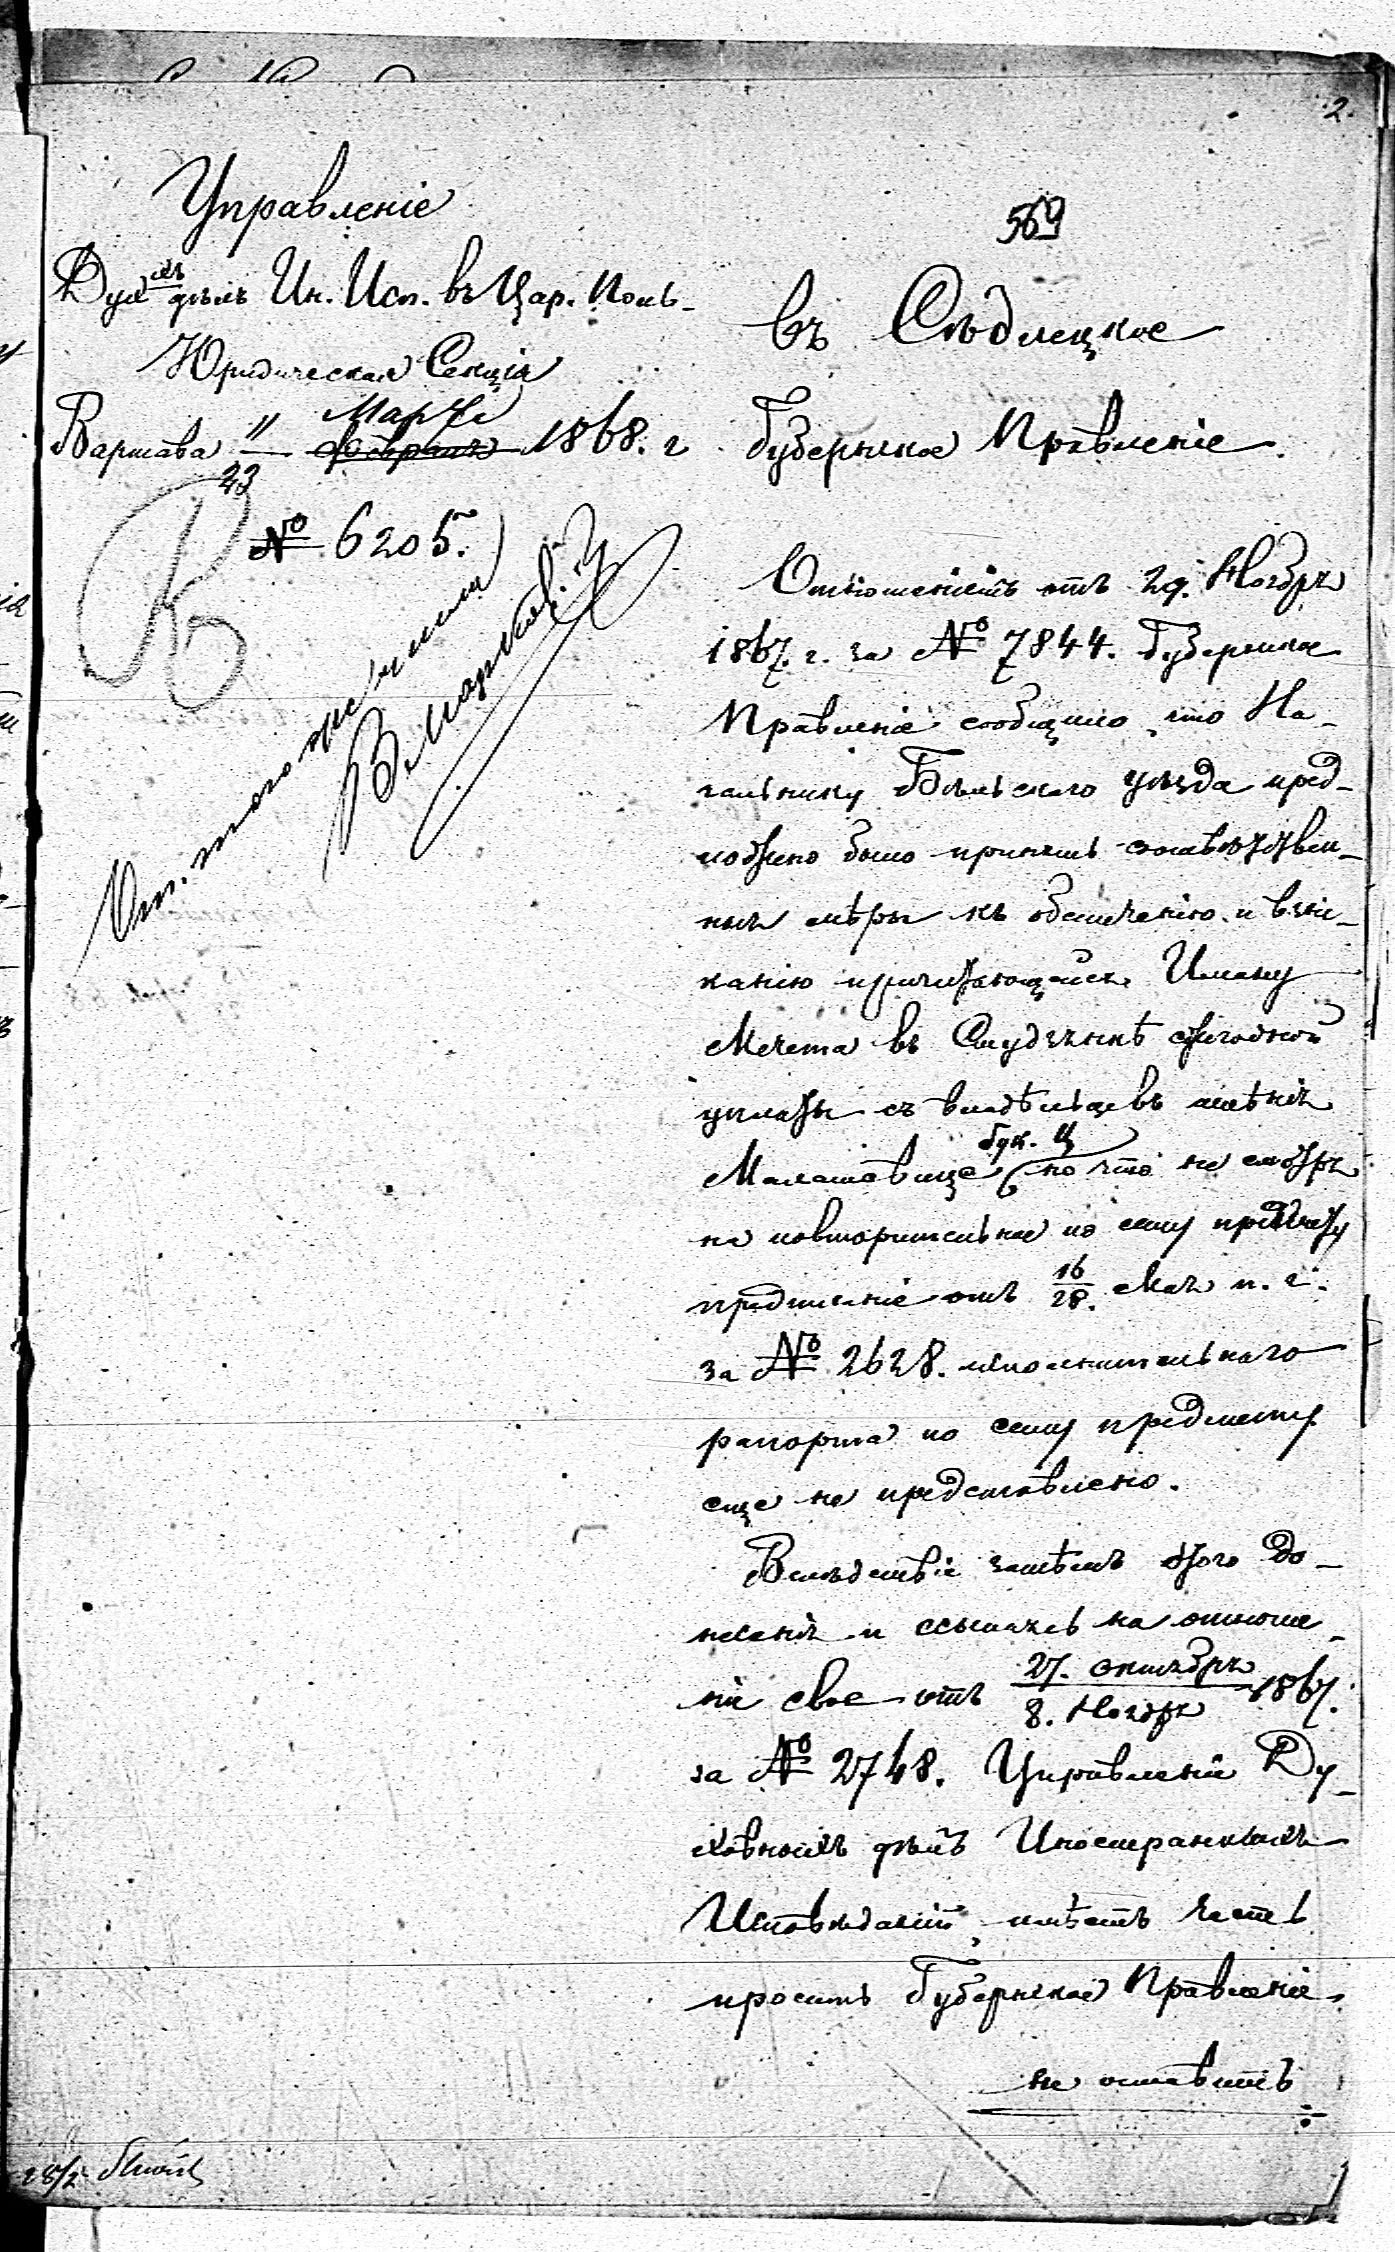 2.
Управленіе
Дух.ыхъ дѣлъ Ин. Исп. въ Цар. Поль-
Юридическая Секція
Варшава " Марта
23 Февраля 1868. г
№ 6205.
569
въ Сѣдлецкое
Губернское Правленіе.
Отношеніемъ отъ 29. Ноября
1867. г. за № 7844. Губернское
Правленіе сообщило, что На-
чальнику Бѣльскаго уѣзда пред-
ложено было принять соотвѣтствен-
ныя мѣры къ обезпеченію и взыс-
канію причитающейся Иману
Мечета въ Студзянкѣ ежегодной
уплаты съ владѣльцевъ имѣнія
Малашевиче бук. Ц но что не смотря
на повторительное по сему предмету
предписаніе отъ 16/28. Мая п. г.
за № 2628. исполнительнаго
рапорта по сему предмету
еще не представлено.
Вслѣдствіе затѣмъ этого до-
несенія и ссылаясь на отноше-
ніе свое отъ 27. октября/8. Ноября 1867.
за № 2748. Управленіе Ду-
ховныхъ дѣлъ Иностранныхъ
Исповѣданій, имѣетъ честь
просить Губернское Правленіе,
не оставить
28/2